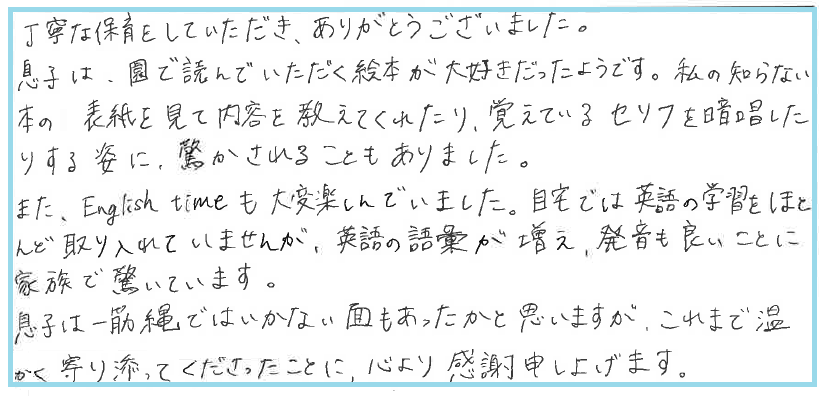 丁寧な保育をしていただき、ありがとうございました。
息子は、園で読んでいただく絵本が大好きだったようです。私の知らない
本の 表紙を見て内容を教えてくれたり、覚えているセリフを暗唱した
りする姿に、驚かされることもありました。
また、English timeも大変楽しんでいました。自宅では英語の学習をほと
んど取り入れていませんが、英語の語彙が増え、発音も良いことに
家族で驚いています。
息子は一筋縄ではいかない面もあったかと思いますが、これまで温
かく寄り添ってくださったことに、心より感謝申し上げます。